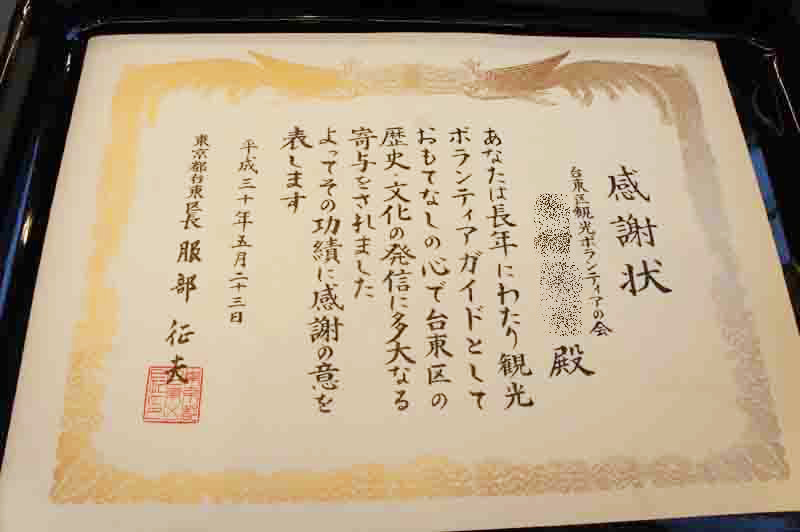 感謝状
台東区観光ボランティアの会
殿
あなたは長年にわたり観光
ボランティアガイドとして
おもてなしの心で台東区の
歴史・文化の発信に多大なる
寄与をされました
よってその功績に感謝の意を
表します
平成三十年五月二十三日
東京都台東区長 服部 征夫